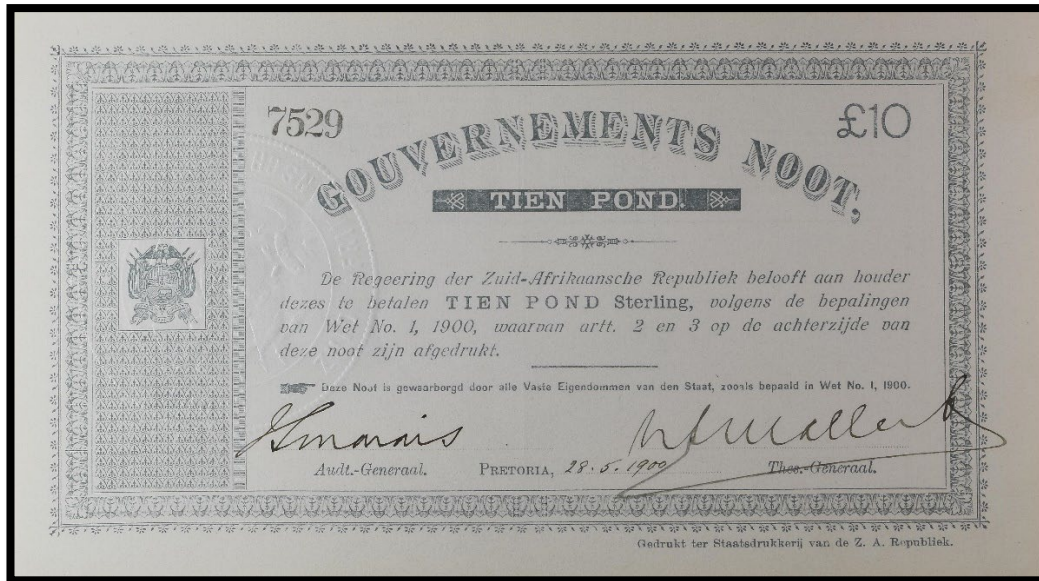 7529
£10
GOUVERNEMENTS NOOT,
TIEN POND.
De Regeering der Zuid-Afrikaansche Republiek belooft aan houder
dezes te betalen TIEN POND Sterling, volgens de bepalingen
van Wet No. 1, 1900, waarvan artt. 2 en 3 op de achterzijde van
deze noot zijn afgedrukt.
Deze Noot is gewaarborgd door alle Vaste Eigendommen van den Staat, zooals bepaald in Wet No. 1, 1900.
Audt.-Generaal. PRETORIA, 28.5.1900 Thes.-Generaal.
Gedrukt ter Staatsdrukkerij van de Z. A. Republiek.